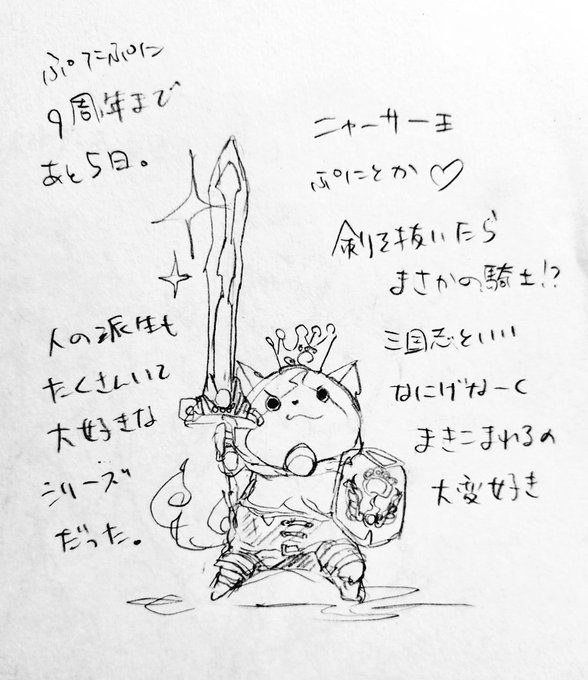 ぷにぷに
9周年まで
あと5日。
ニャーサー王
ぷにとか♡
剣を抜いたら
まさかの騎士!?
三国志といい
なにげなーく
まきこまれるの
大変好き
人の派生も
たくさんいて
大好きな
シリーズ
だった。